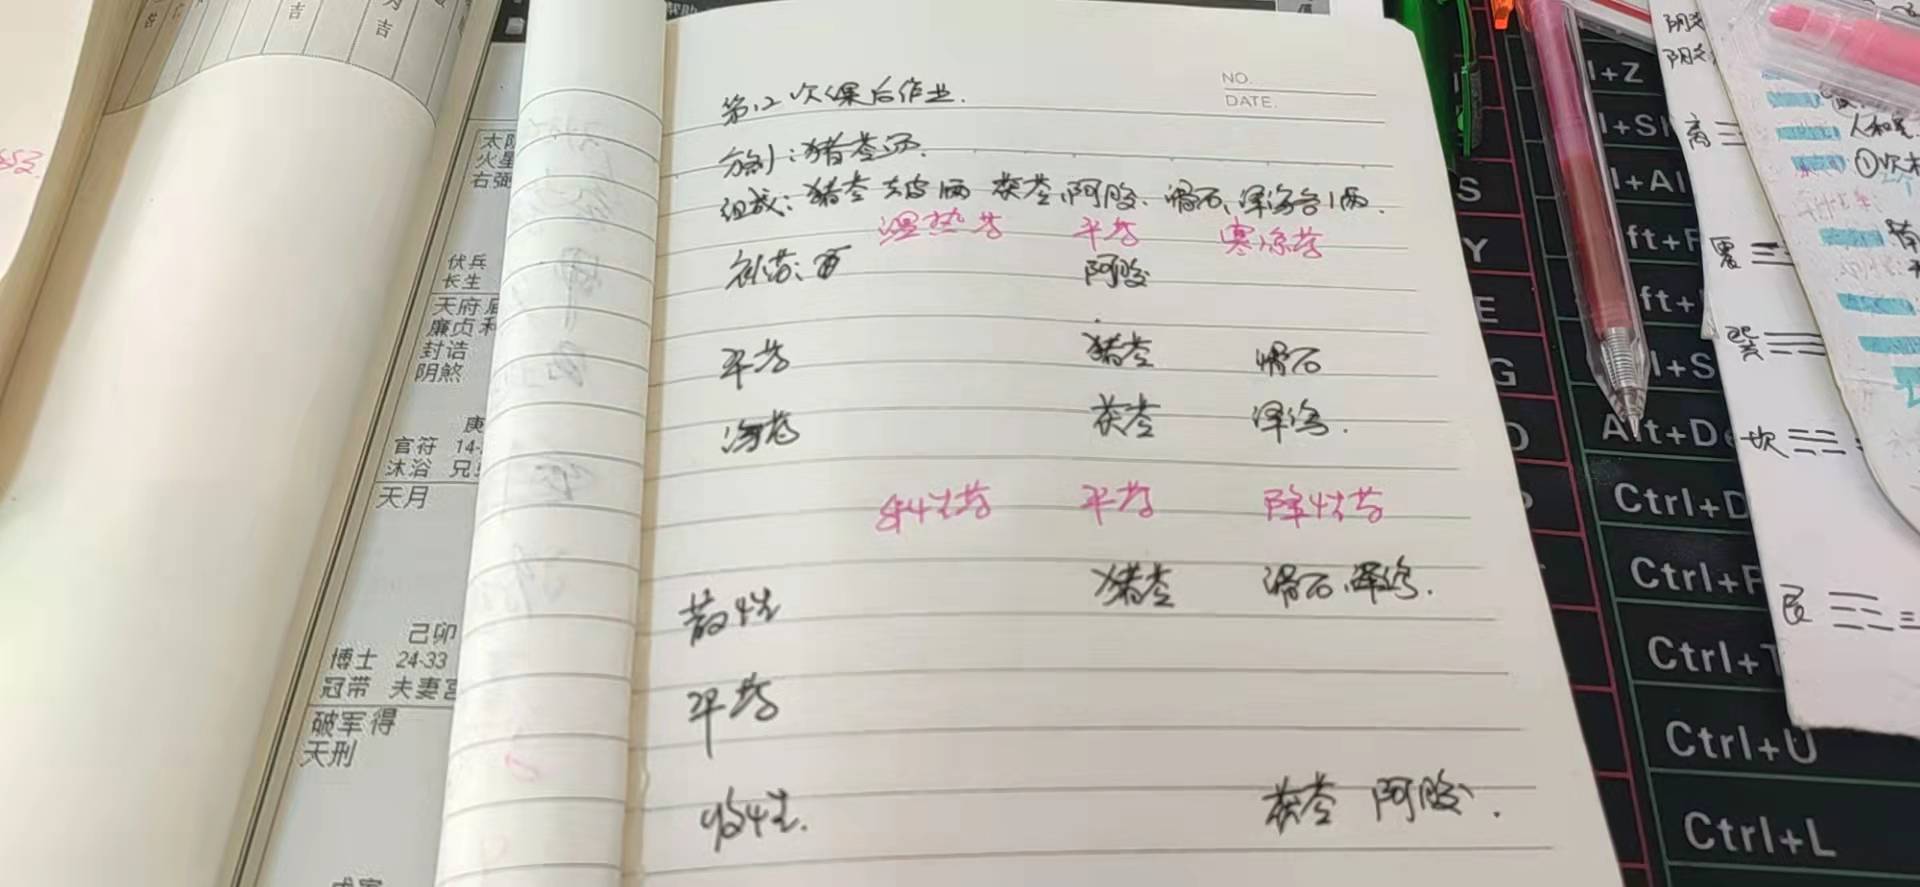 为吉
吉
太阴
火星
右弼
伏兵
长生
天府
廉贞
封诰
阴煞
庚
官符 14-
沐浴 兄
天月
己卯
博士 24-33
冠带 夫妻宫
破军 得
天刑
NO.
DATE.
第12次课后作业.
方剂:猪苓汤.
组成:猪苓去皮 茯苓,阿胶.滑石,泽泻各1两.
温热药 平药 寒凉药
补药: 阿胶
平药 猪苓 滑石
泻药 茯苓 泽泻.
升性药 平药 降性药
散性 猪苓 滑石,泽泻.
平药
收性. 茯苓 阿胶.
I+Z
I+S
I+Al
ft+F
ft+
I+S
Alt+D
Ctrl+D
Ctrl+F
Ctrl+T
Ctrl+U
Ctrl+L
S
Y
E
G
离
震
巽
坎
艮
人和
①次